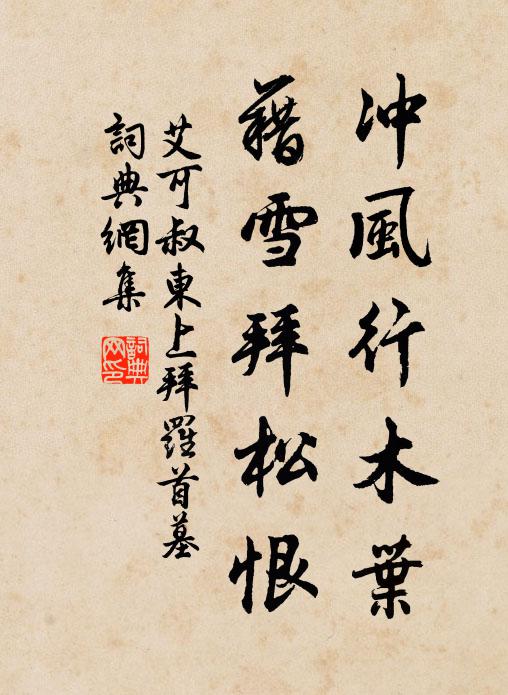 冲風行木葉
藉雪拜松恨
艾可叔東上拜羅首墓
詞典網集
詞典網印